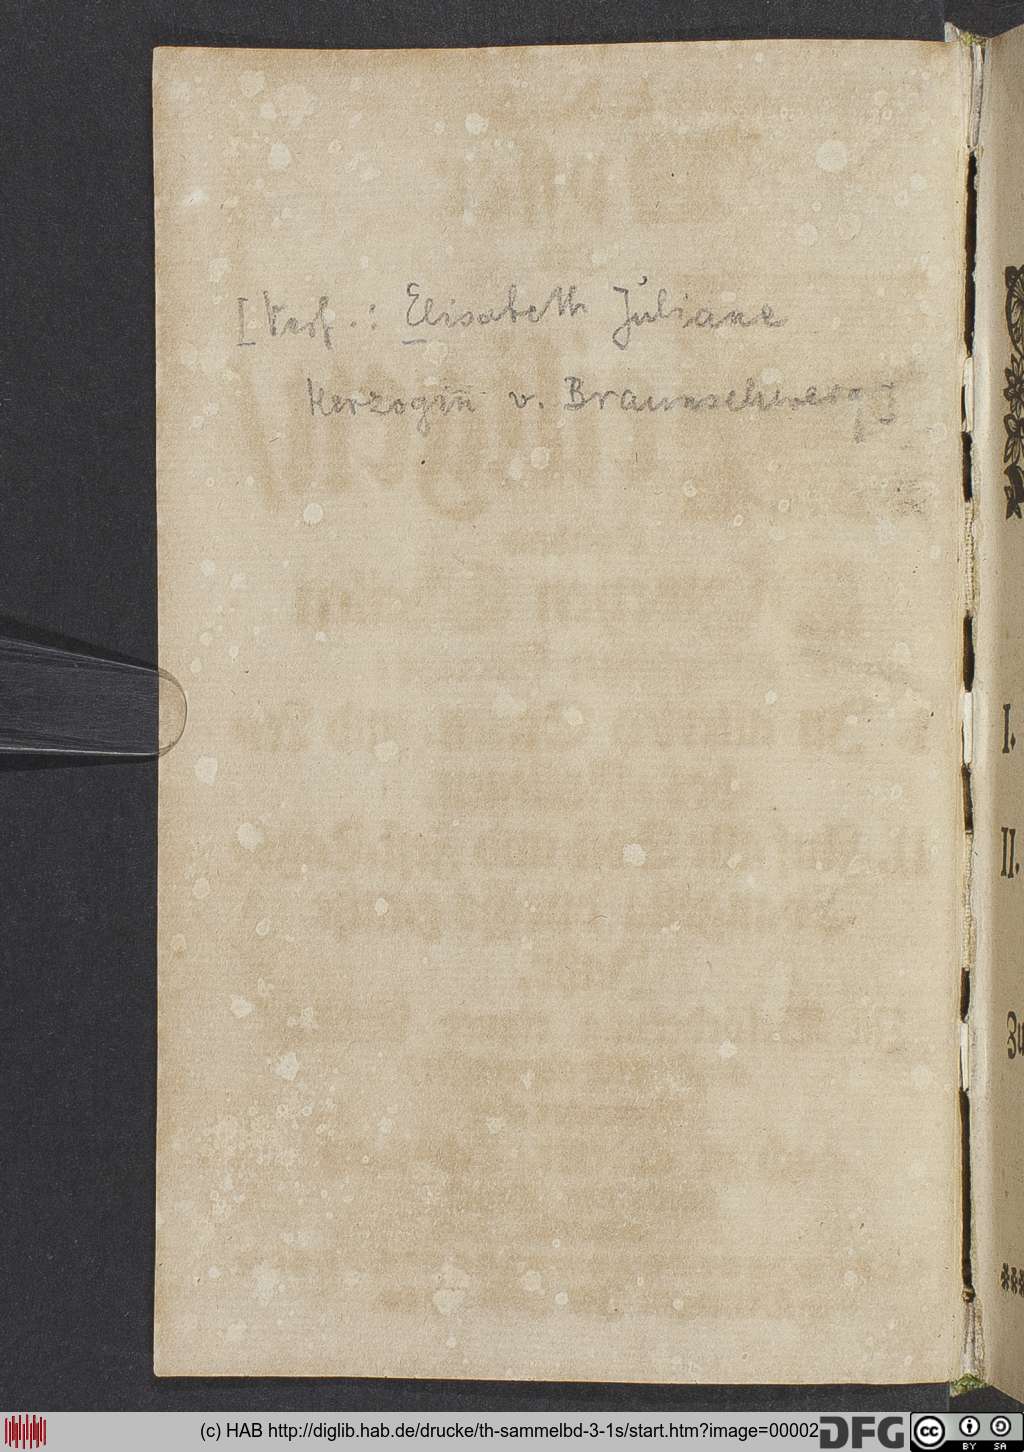 [Verf.: Elisabeth Juliane
Herzogin v. Braunschweig]
I.
II.
Zu
***
(c) HAB http://diglib.hab.de/drucke/th-sammelbd-3-1s/start.htm?image=00002
DFG
cc
BY SA